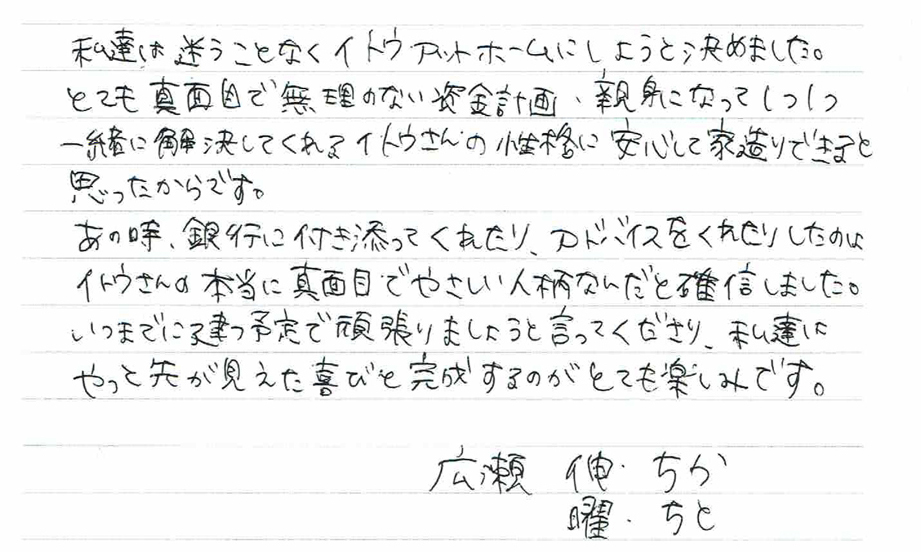 私達は迷うことなくイトウアットホームにしようと決めました。
とても真面目で無理のない資金計画、親身になって1つ1つ
一緒に解決してくれるイトウさんの性格に安心して家造りできると
思ったからです。
あの時、銀行に付き添ってくれたり、アドバイスをくれたりしたのは
イトウさんの本当に真面目でやさしい人柄なんだと確信しました。
いつまでに建つ予定で頑張りましょうと言ってくださり、私達は
やっと先が見えた喜びと完成するのがとても楽しみです。
広瀬 伸・ちか
曜・ちと